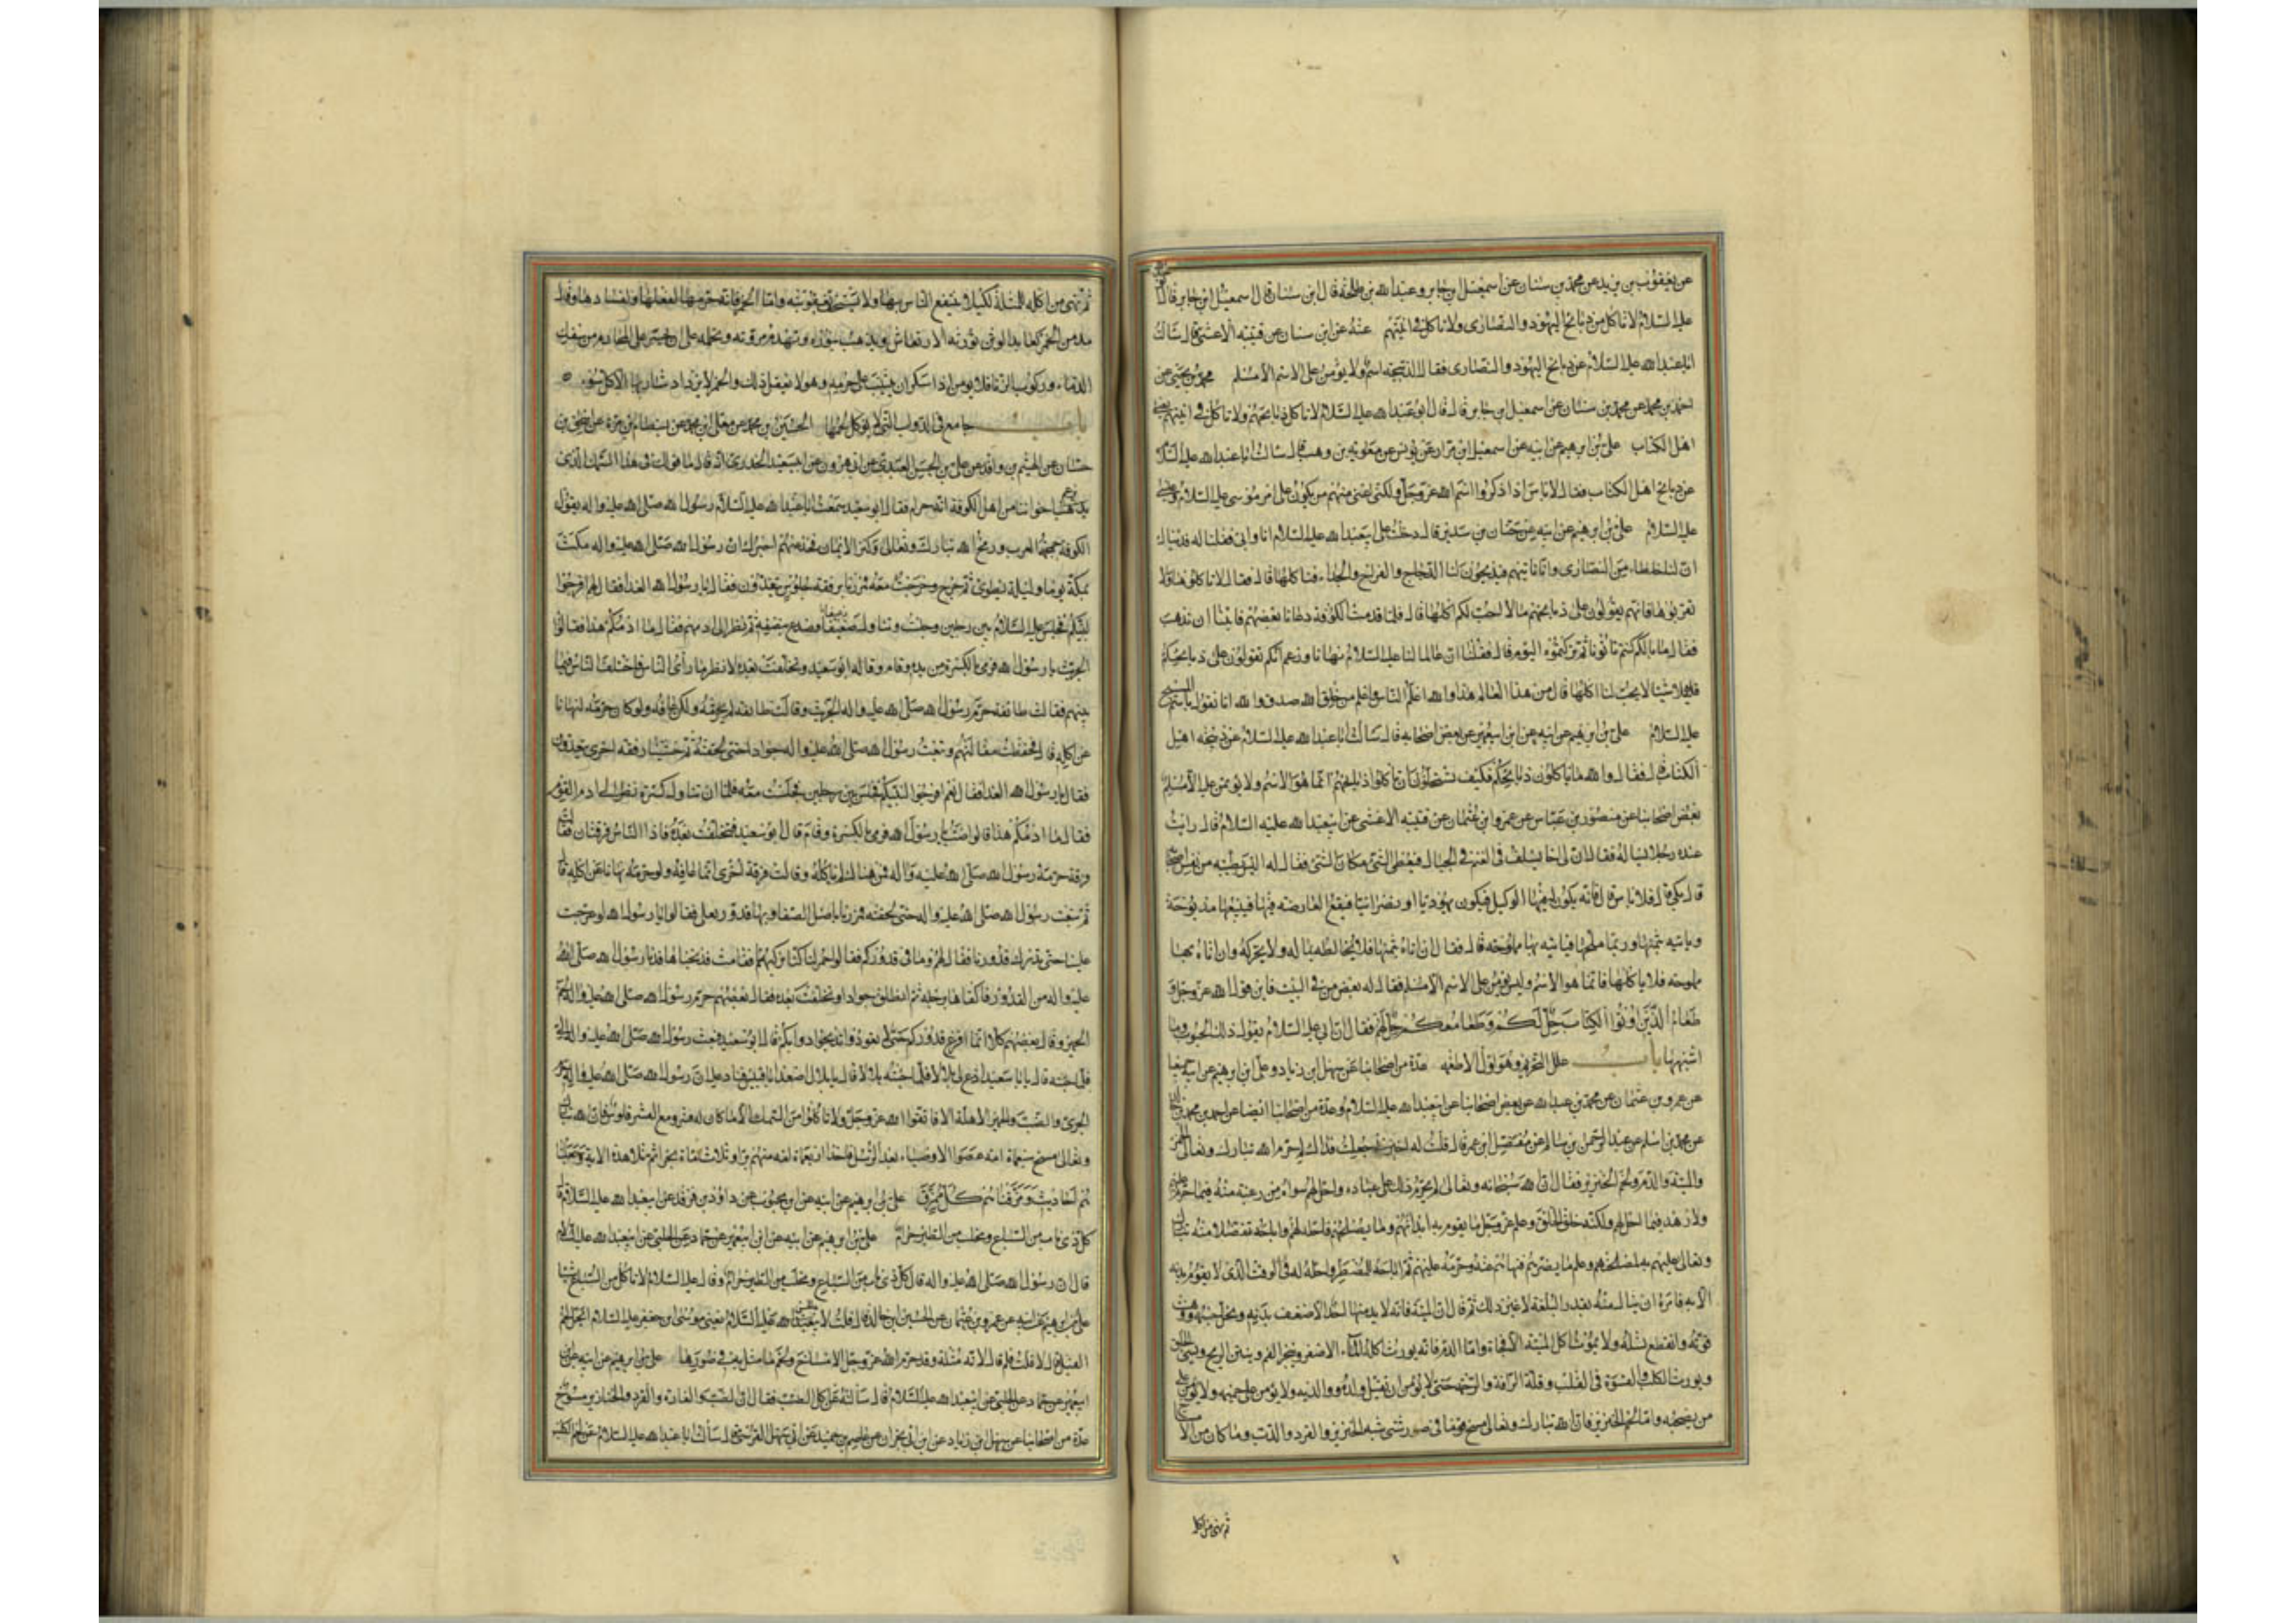 عن يعقوب بن يزيد عن محمد بن سنان عن اسمعيل بن جابر وعبد الله بن طلحة قال ابن سنان قال اسمعيل ابن جابر قال
عليه السلام لا تاكل من ذبائح اليهود والنصارى ولا تاكل في آنيتهم عنه عن ابن سنان عن قتيبة الاعشى قال سالت
ابا عبد الله عليه السلام عن ذبائح اليهود والنصارى فقال الذبيحة اسم ولا يؤمن على الاسم الا مسلم محمد بن يحيى عن
احمد بن محمد عن محمد بن سنان عن اسمعيل ابن جابر قال قال ابو عبد الله عليه السلام لا تاكل ذبائحهم ولا تاكل في آنيتهم يعني
اهل الكتاب على بن ابرهيم عن ابيه عن اسمعيل ابن مرار عن يونس عن معوية بن وهب قال سالت ابا عبد الله عليه السلام
عن ذبائح اهل الكتاب فقال لا باس اذا ذكروا اسم الله عز وجل ولكني اعني منهم من يكون على امر موسى عليه السلام وعيسى
عليه السلام على بن ابرهيم عن ابيه عن حنان بن سدير قال دخلت على ابي عبد الله عليه السلام انا وابي فقلنا له فدنياك
ان لنا خلطاء من النصارى وانا ناتيهم فيذبحون لنا الدجاج والفراخ والجداء فناكلها قال فقال لا تاكلوها ولا
تقربوها فانهم يقولون على ذبائحهم ما لا احب لكم اكلها قال فلما قدمنا الكوفة دعانا بعضهم فابينا ان نذهب
فقال ما بالكم كنتم تاتونا ثم تركتموه اليوم قال فقلنا ان عالما لنا عليه السلام نهانا وزعم انكم تقولون على ذبائحكم
شيئا لا يحب لنا اكلها قال من هذا العالم هذا والله اعلم الناس واعلم من خلق الله صدق والله انا نقول باسم المسيح
عليه السلام على بن ابرهيم عن ابيه عن ابن ابي عمير عن بعض اصحابه قال سالت ابا عبد الله عليه السلام عن ذبيحة اهل
الكتاب قال فقال والله ما ياكلون ذبائحكم فكيف تستحلون ان تاكلوا ذبائحهم انما هو الاسم ولا يؤمن عليه الا مسلم
بعض اصحابنا عن منصور بن عباس عن عمرو ابن عثمان عن قتيبة الاعشى عن ابي عبد الله عليه السلام قال رايت
عنده رجلا يساله فقال ان لي اخا يسلف في الغنم في الجبال فيعطى السن مكان السن فقال له اليس بطيبة من نفس اصحابه
قال بلى قال فلا باس قال فانه يكون له فيها الوكيل فيكون يهوديا او نصرانيا فيقع العارضة فيها فيبيعها مذبوحة
وياتيه بثمنها وربما ملحها فياتيه بها مملوحة قال فقال ان اتاه بثمنها فلا يخالطه بماله ولا يحركه وان اتاه بها
مملوحة فلا ياكلها فانما هو الاسم وليس يؤمن على الاسم الا مسلم فقال له بعض من في البيت فاين قول الله عز وجل و
طعام الذين اوتوا الكتاب حل لكم وطعامكم حل لهم فقال ان ابي عليه السلام يقول ذلك الحبوب وما
اشبهها باب علل التحريم وهو اول الاطعمة عدة من اصحابنا عن سهل ابن زياد وعلى ابن ابرهيم عن ابيه جميعا
عن عمرو بن عثمان عن محمد بن عبد الله عن بعض اصحابنا عن ابي عبد الله عليه السلام وعدة من اصحابنا ايضا عن احمد بن محمد بن خالد
عن محمد بن اسلم عن عبد الرحمن بن سالم عن مفضل ابن عمر قال قلت له اخبرني جعلت فداك لم حرم الله تبارك وتعالى الخمر
والميتة والدم ولحم الخنزير فقال ان الله سبحانه وتعالى لم يحرم ذلك على عباده واحل لهم سواه من رغبة منه فيما حرم عليهم
ولا زهد فيما احل لهم ولكنه خلق الخلق وعلم عز وجل ما يقوم به ابدانهم وما يصلحهم فاحله لهم واباحه تفضلا منه تبارك
وتعالى عليهم به لمصلحتهم وعلم ما يضرهم فنهاهم عنه وحرمه عليهم ثم اباحه للمضطر واحله له في الوقت الذي لا يقوم بدنه
الا به فامره ان ينال منه بقدر البلغة لا غير ذلك ثم قال ان الميتة فانه لا يدمنها احد الا ضعف بدنه ونحل جسمه ووهنت
قوته وانقطع نسله ولا يموت آكل الميتة الا فجاة واما الدم فانه يورث اكله الماء الاصفر ويبخر الفم وينتن الريح ويسيء الخلق
ويورث الكلب والقسوة في القلب وقلة الرافة والرحمة حتى لا يؤمن ان يقتل ولده ووالديه ولا يؤمن على حميمه ولا يؤمن على
من يصحبه واما لحم الخنزير فان الله تبارك وتعالى مسخ قوما في صور شتى شبه الخنزير والقرد والدب وما كان من الامساخ
ثم نهى عن اكل
ثم نهى عن اكله للمثلة لكيلا ينتفع الناس بها ولا يستخف بعقوبته واما الخمر فانه حرمها لفعلها ولفسادها وقال
مدمن الخمر كعابد الوثن تورثه الارتعاش ويذهب بنوره وتهدم مروته وتحمله على ان يجسر على المحارم من سفك
الدماء وركوب الزنا فلا يؤمن اذا سكر ان يثب على حرمه وهو لا يعقل ذلك والخمر لا يزداد شاربها الا كل سوء
باب جامع في الدواب التي لا يؤكل لحمها الحسين بن محمد عن معلى ابن محمد عن بسطام بن مرة عن اسحق بن
حسان عن الهيثم بن واقد عن على بن الحسن العبدي عن ابي هرون عن ابي سعيد الخدري انه قال ما قولك في هذا السمك الذي
يزعم اخواننا من اهل الكوفة انه حرام فقال ابو سعيد سمعت ابا عبد الله عليه السلام رسول الله صلى الله عليه واله يقول
الكوفة جمجمة العرب ورمح الله تبارك وتعالى وكنز الايمان فخذ عنهم اخبرك ان رسول الله صلى الله عليه واله مكث
بمكة يوما وليلة يطوى ثم خرج وخرجت معه فمررنا برفقة جلوس يتغدون فقال يا رسول الله الغدا فقال لهم افرجوا
لنبيكم فجلس عليه السلام بين رجلين وجلست وتناول رغيفا فصدع بنصفه ثم نظر الى ادمهم فقال ما ادمكم هذا فقالوا
الجريث يا رسول الله فرمى بالكسرة من يده وقام وقال ابو سعيد وتخلفت بعده لانظر ما راى الناس فاختلف الناس فيما
بينهم فقالت طائفة حرم رسول الله صلى الله عليه واله الجريث وقالت طائفة لم يحرمه ولكن عافه ولو كان حرمه لنهانا
عن اكله قال فحفظت مقالتهم وتبعت رسول الله صلى الله عليه واله جوادا حتى لحقته ثم غشينا رفقة اخرى يتغدون
فقالوا يا رسول الله الغدا فقال نعم افرجوا لنبيكم فجلس بين رجلين وجلست معه فلما ان تناول كسرة نظر الى ادم القوم
فقال ما ادمكم هذا قالوا ضب يا رسول الله فرمى بالكسرة وقام قال ابو سعيد فتخلفت بعده فاذا الناس فرقتان
فرقة حرمه رسول الله صلى الله عليه واله فمن هنالك لم ياكله وقالت فرقة اخرى انما عافه ولو حرمه لنهانا عن اكله
ثم تبعت رسول الله صلى الله عليه واله حتى لحقته فمررنا باصل الصفا وبها قدور تغلى فقالوا يا رسول الله لو عرجت
علينا حتى تدرك قدورنا فقال لهم وما في قدوركم فقالوا حمر لنا كنا نركبها فقامت فذبحناها فدنا رسول الله صلى الله
عليه واله من القدور فاكفاها برجله ثم انطلق جوادا وتخلفت بعده فقال بعضهم حرم رسول الله صلى الله عليه واله لحم
الحمير وقال بعضهم كلا انما افرغ قدوركم حتى لا تعودوا فتذبحوا دوابكم قال ابو سعيد فبعث رسول الله صلى الله عليه واله الي
فلما جئته قال يا ابا سعيد ادع لي بلالا فلما جئته بلالا قال يا بلال اصعد ابا قبيس فناد عليه ان رسول الله صلى الله عليه واله حرم
الجرى والضب والحمير الاهلية الا فاتقوا الله عز وجل ولا تاكلوا من السمك الا ما كان له قشر ومع القشر فلوس فان الله تبارك
وتعالى مسخ سبعماة امة عصوا الاوصياء بعد الرسل فاخذ اربعماة امة منهم برا وثلاثماة بحرا ثم تلا هذه الاية وجعلنا
هم احاديث ومزقناهم كل ممزق على بن ابرهيم عن ابيه عن ابن محبوب عن داود بن فرقد عن ابي عبد الله عليه السلام قال
كل ذي ناب من السباع ومخلب من الطير حرام على بن ابرهيم عن ابيه عن ابن ابي عمير عن حماد عن الحلبي عن ابي عبد الله عليه السلام
قال ان رسول الله صلى الله عليه واله قال كل ذي ناب من السباع ومخلب من الطير حرام وقال عليه السلام لا تاكل من السباع شيئا
على بن ابرهيم عن ابيه عن عمرو بن عثمان عن الحسين ابن خالد قال قلت لابي الحسن عليه السلام يعني موسى ابن جعفر عليه السلام ايحل لحم
الفيل قال لا قلت فلم قال لانه مثلة وقد حرم الله عز وجل الامساخ ولحم ما مثل به في صورها على بن ابرهيم عن ابيه عن ابن
ابي عمير عن حماد عن الحلبي عن ابي عبد الله عليه السلام قال سالته عن اكل الضب فقال ان الضب والفارة والقرد والخنازير مسوخ
عدة من اصحابنا عن سهل ابن زياد عن ابن ابي نجران عن عاصم بن حميد عن ابي سهل القرشي قال سالت ابا عبد الله عليه السلام عن لحم الكلب